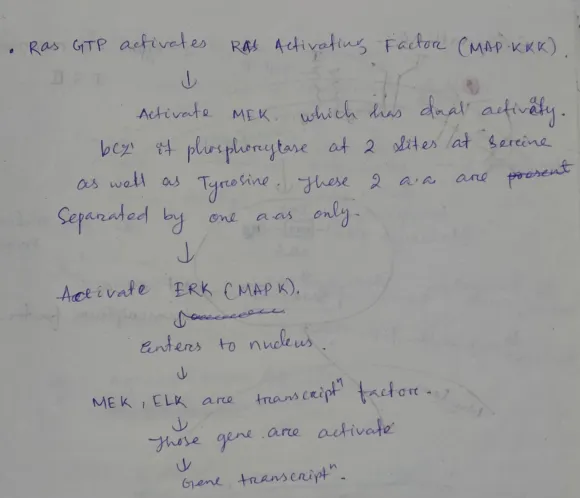 • Ras GTP activates RAS Activating Factor (MAP·KKK).
↓
Activate MEK. which has dual activity.
bcz' it phosphorylase at 2 sites at Sereine
as well as Tyrosine. These 2 a.a are present
Separated by one a.as only.
↓
Activate ERK (MAPK).
↓
Enters to nucleus.
↓
MEK, ELK are transcriptⁿ factor.
↓
Those gene are activate
↓
Gene transcriptⁿ.